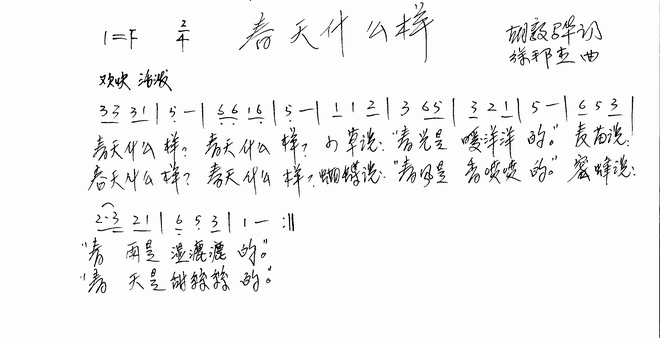 1=F 2/4 春天什么样 胡敦骅词
徐邦杰曲
欢快 活泼
3 3 3 1 | 5 - | 6 6 1 6 | 5 - | 1 1 2 | 3 6 5 | 3 2 1 | 5 - | 6 5 3 |
春天什么样? 春天什么样? 小草说:"春光是 暖洋洋 的。" 麦苗说:
春天什么样? 春天什么样? 蝴蝶说:"春风是 香喷喷 的。" 蜜蜂说:
2·3 2 1 | 6 5 3 | 1 - :||
"春 雨是 湿漉漉 的。"
"春 天是 甜 的。"